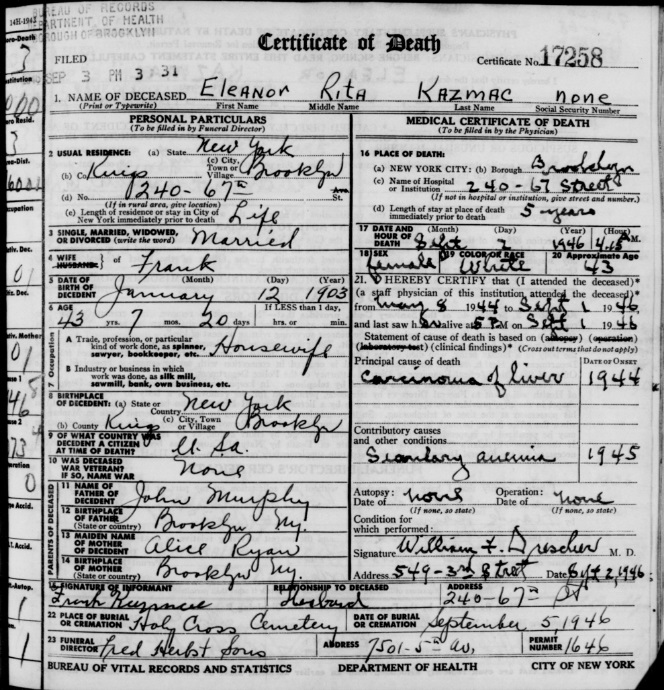 14H-1942 BUREAU OF RECORDS
DEPARTMENT OF HEALTH
BOROUGH OF BROOKLYN
Certificate of Death
FILED
Certificate No. 17258
SEP 3 PM 3 31
1. NAME OF DECEASED Eleanor Rita Kazmac none
(Print or Typewrite) First Name Middle Name Last Name Social Security Number
PERSONAL PARTICULARS
(To be filled in by Funeral Director)
2 USUAL RESIDENCE: (a) State New York
(b) Co. Kings (c) City, Town or Village Brooklyn
(d) No. 240-67th Ave. St.
(If in rural area, give location)
(e) Length of residence or stay in City of New York immediately prior to death Life
3 SINGLE, MARRIED, WIDOWED, OR DIVORCED (write the word) Married
4 WIFE HUSBAND } of Frank
5 DATE OF BIRTH OF DECEDENT (Month) (Day) (Year)
January 12 1903
6 AGE If LESS than 1 day,
43 yrs. 7 mos. 20 days hrs. or min.
7 Occupation
A Trade, profession, or particular kind of work done, as spinner, sawyer, bookkeeper, etc. Housewife
B Industry or business in which work was done, as silk mill, sawmill, bank, own business, etc.
8 BIRTHPLACE OF DECEDENT: (a) State or Country New York
(b) County Kings (c) City, Town or Village Brooklyn
9 OF WHAT COUNTRY WAS DECEDENT A CITIZEN AT TIME OF DEATH? U.Sa.
10 WAS DECEASED WAR VETERAN? IF SO, NAME WAR None
PARENTS OF DECEASED
11 NAME OF FATHER OF DECEDENT John Murphy
12 BIRTHPLACE OF FATHER (State or country) Brooklyn Ny.
13 MAIDEN NAME OF MOTHER OF DECEDENT Alice Ryan
14 BIRTHPLACE OF MOTHER (State or country) Brooklyn Ny.
MEDICAL CERTIFICATE OF DEATH
(To be filled in by the Physician)
16 PLACE OF DEATH:
(a) NEW YORK CITY: (b) Borough Brooklyn
(c) Name of Hospital or Institution 240-67 Street
(If not in hospital or institution, give street and number.)
(d) Length of stay at place of death immediately prior to death 5 years
17 DATE AND HOUR OF DEATH (Month) (Day) (Year) (Hour)
Sept 2 1946 4.15 A M.
18 SEX 19 COLOR OR RACE 20 Approximate Age
female White 43
21. I HEREBY CERTIFY that (I attended the deceased)*
(a staff physician of this institution attended the deceased)*
from May 8 1944 to Sept 1 1946
and last saw her alive at 5 P M on Sept 1 1946
Statement of cause of death is based on (autopsy) (operation)
(laboratory test) (clinical findings)* (Cross out terms that do not apply)
Principal cause of death DATE OF ONSET
Carcinoma of liver 1944
Contributory causes and other conditions
Secondary anemia 1945
Autopsy: Date of none Operation: Date of none
(If none, so state) (If none, so state)
Condition for which performed:
Signature William F. Drescher M. D.
Address 549-3rd Street Date Sept 2, 1946
15 SIGNATURE OF INFORMANT RELATIONSHIP TO DECEASED ADDRESS
Frank Husband 240-67th St
22 PLACE OF BURIAL OR CREMATION Holy Cross Cemetery DATE OF BURIAL OR CREMATION September 5 1946
23 FUNERAL DIRECTOR Fred Herbst Sons ADDRESS 7501-5th av. PERMIT NUMBER 1646
BUREAU OF VITAL RECORDS AND STATISTICS DEPARTMENT OF HEALTH CITY OF NEW YORK